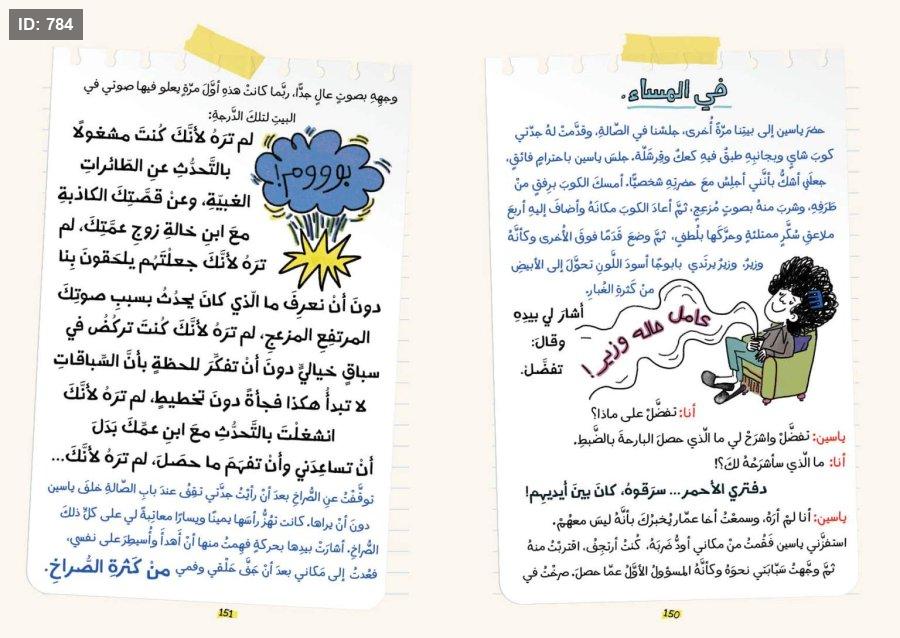 ID: 784
في المساء.
حضرَ ياسين إلى بيتِنا مرّةً أُخرى، جلسْنا في الصّالةِ، وقدَّمتْ لهُ جدّتي
كوبَ شايٍ وبجانبِهِ طبقٌ فيه كعكٌ وقِرشَلّة. جلسَ ياسين باحترامٍ فائقٍ،
جعلَني أشكُّ بأنَّني أجلِسُ معَ حضرتِهِ شخصيًّا. أمسكَ الكوبَ برِفقٍ منْ
طَرَفِهِ، وشربَ منهُ بصوتٍ مُزعِجٍ، ثمَّ أعادَ الكوبَ مكانَهُ وأضافَ إليهِ أربعَ
ملاعقِ سُكَّرٍ ممتلئةٍ وحرَّكَها بلُطفٍ، ثمَّ وضعَ قَدَمًا فوقَ الأُخرى وكأنَّهُ
وزيرٌ، وزيرٌ يرتَدي بابوجًا أسودَ اللَّونِ تحوَّلَ إلى الأبيضِ
منْ كَثرةِ الغُبارِ.
عامل حاله وزير!
أشارَ لي بيدِهِ
وقالَ:
تفضَّلْ.
أنا: تفضَّلْ على ماذا؟
ياسين: تفضَّلْ واشرَحْ لي ما الّذي حصلَ البارحةَ بالضَّبطِ.
أنا: ما الّذي سأشرَحُهُ لكَ؟!
دفتري الأحمر... سرَقوهُ، كانَ بينَ أيديهِم!
ياسين: أنا لمْ أرَهُ، وسمعْتُ أخا عمّار يُخبرُكَ بأنَّهُ ليسَ معهُمْ.
استفزَّني ياسين فَقُمتُ منْ مكاني أودُّ ضَربَهُ، كُنتُ أرتجِفُ، اقتربْتُ منهُ
ثمَّ وجَّهتُ سَبّابَتي نحوَهُ وكأنَّهُ المسؤولُ الأوَّلُ عمّا حصلَ. صرخْتُ في
150
وجهِهِ بصوتٍ عالٍ جدًّا، ربَّما كانتْ هذهِ أوَّلَ مرّةٍ يعلو فيها صوتي في
البيتِ لتلكَ الدَّرجةِ:
لم ترَهُ لأنَّكَ كُنتَ مشغولًا
بالتَّحدُّثِ عنِ الطّائراتِ
الغبيّةِ، وعنْ قصَّتِكَ الكاذبةِ
معَ ابنِ خالةِ زوجِ عمَّتِكَ، لم
ترَهُ لأنَّكَ جعلْتَهُم يلحَقونَ بِنا
بوووم!
دونَ أنْ نعرِفَ ما الّذي كانَ يحدُثُ بسببِ صوتِكَ
المرتفِعِ المزعجِ، لم ترَهُ لأنَّكَ كُنتَ تركُضُ في
سباقٍ خياليٍّ دونَ أنْ تفكِّرَ للحظةٍ بأنَّ السِّباقاتِ
لا تبدأُ هكذا فجأةً دونَ تخطيطٍ، لم ترَهُ لأنَّكَ
انشغلْتَ بالتَّحدُّثِ معَ ابنِ عمِّكَ بَدَلَ
أنْ تساعِدَني وأنْ تفهَمَ ما حصَلَ، لم ترَهُ لأنَّكَ...
توقَّفْتُ عنِ الصُّراخِ بعدَ أنْ رأيْتُ جدَّتي تقِفُ عندَ بابِ الصّالةِ خلفَ ياسين
دونَ أنْ يراها. كانت تهُزُّ رأسَها يمينًا ويسارًا معاتِبةً لي على كلِّ ذلكَ
الصُّراخِ. أشارَتْ بيدِها بحركةٍ فهِمتُ منها أنْ أهدأَ وأُسيطِرَ على نفسي،
فعُدتُ إلى مَكاني بعدَ أنْ جَفَّ حَلْقي وفمي منْ كَثرةِ الصُّراخِ.
151